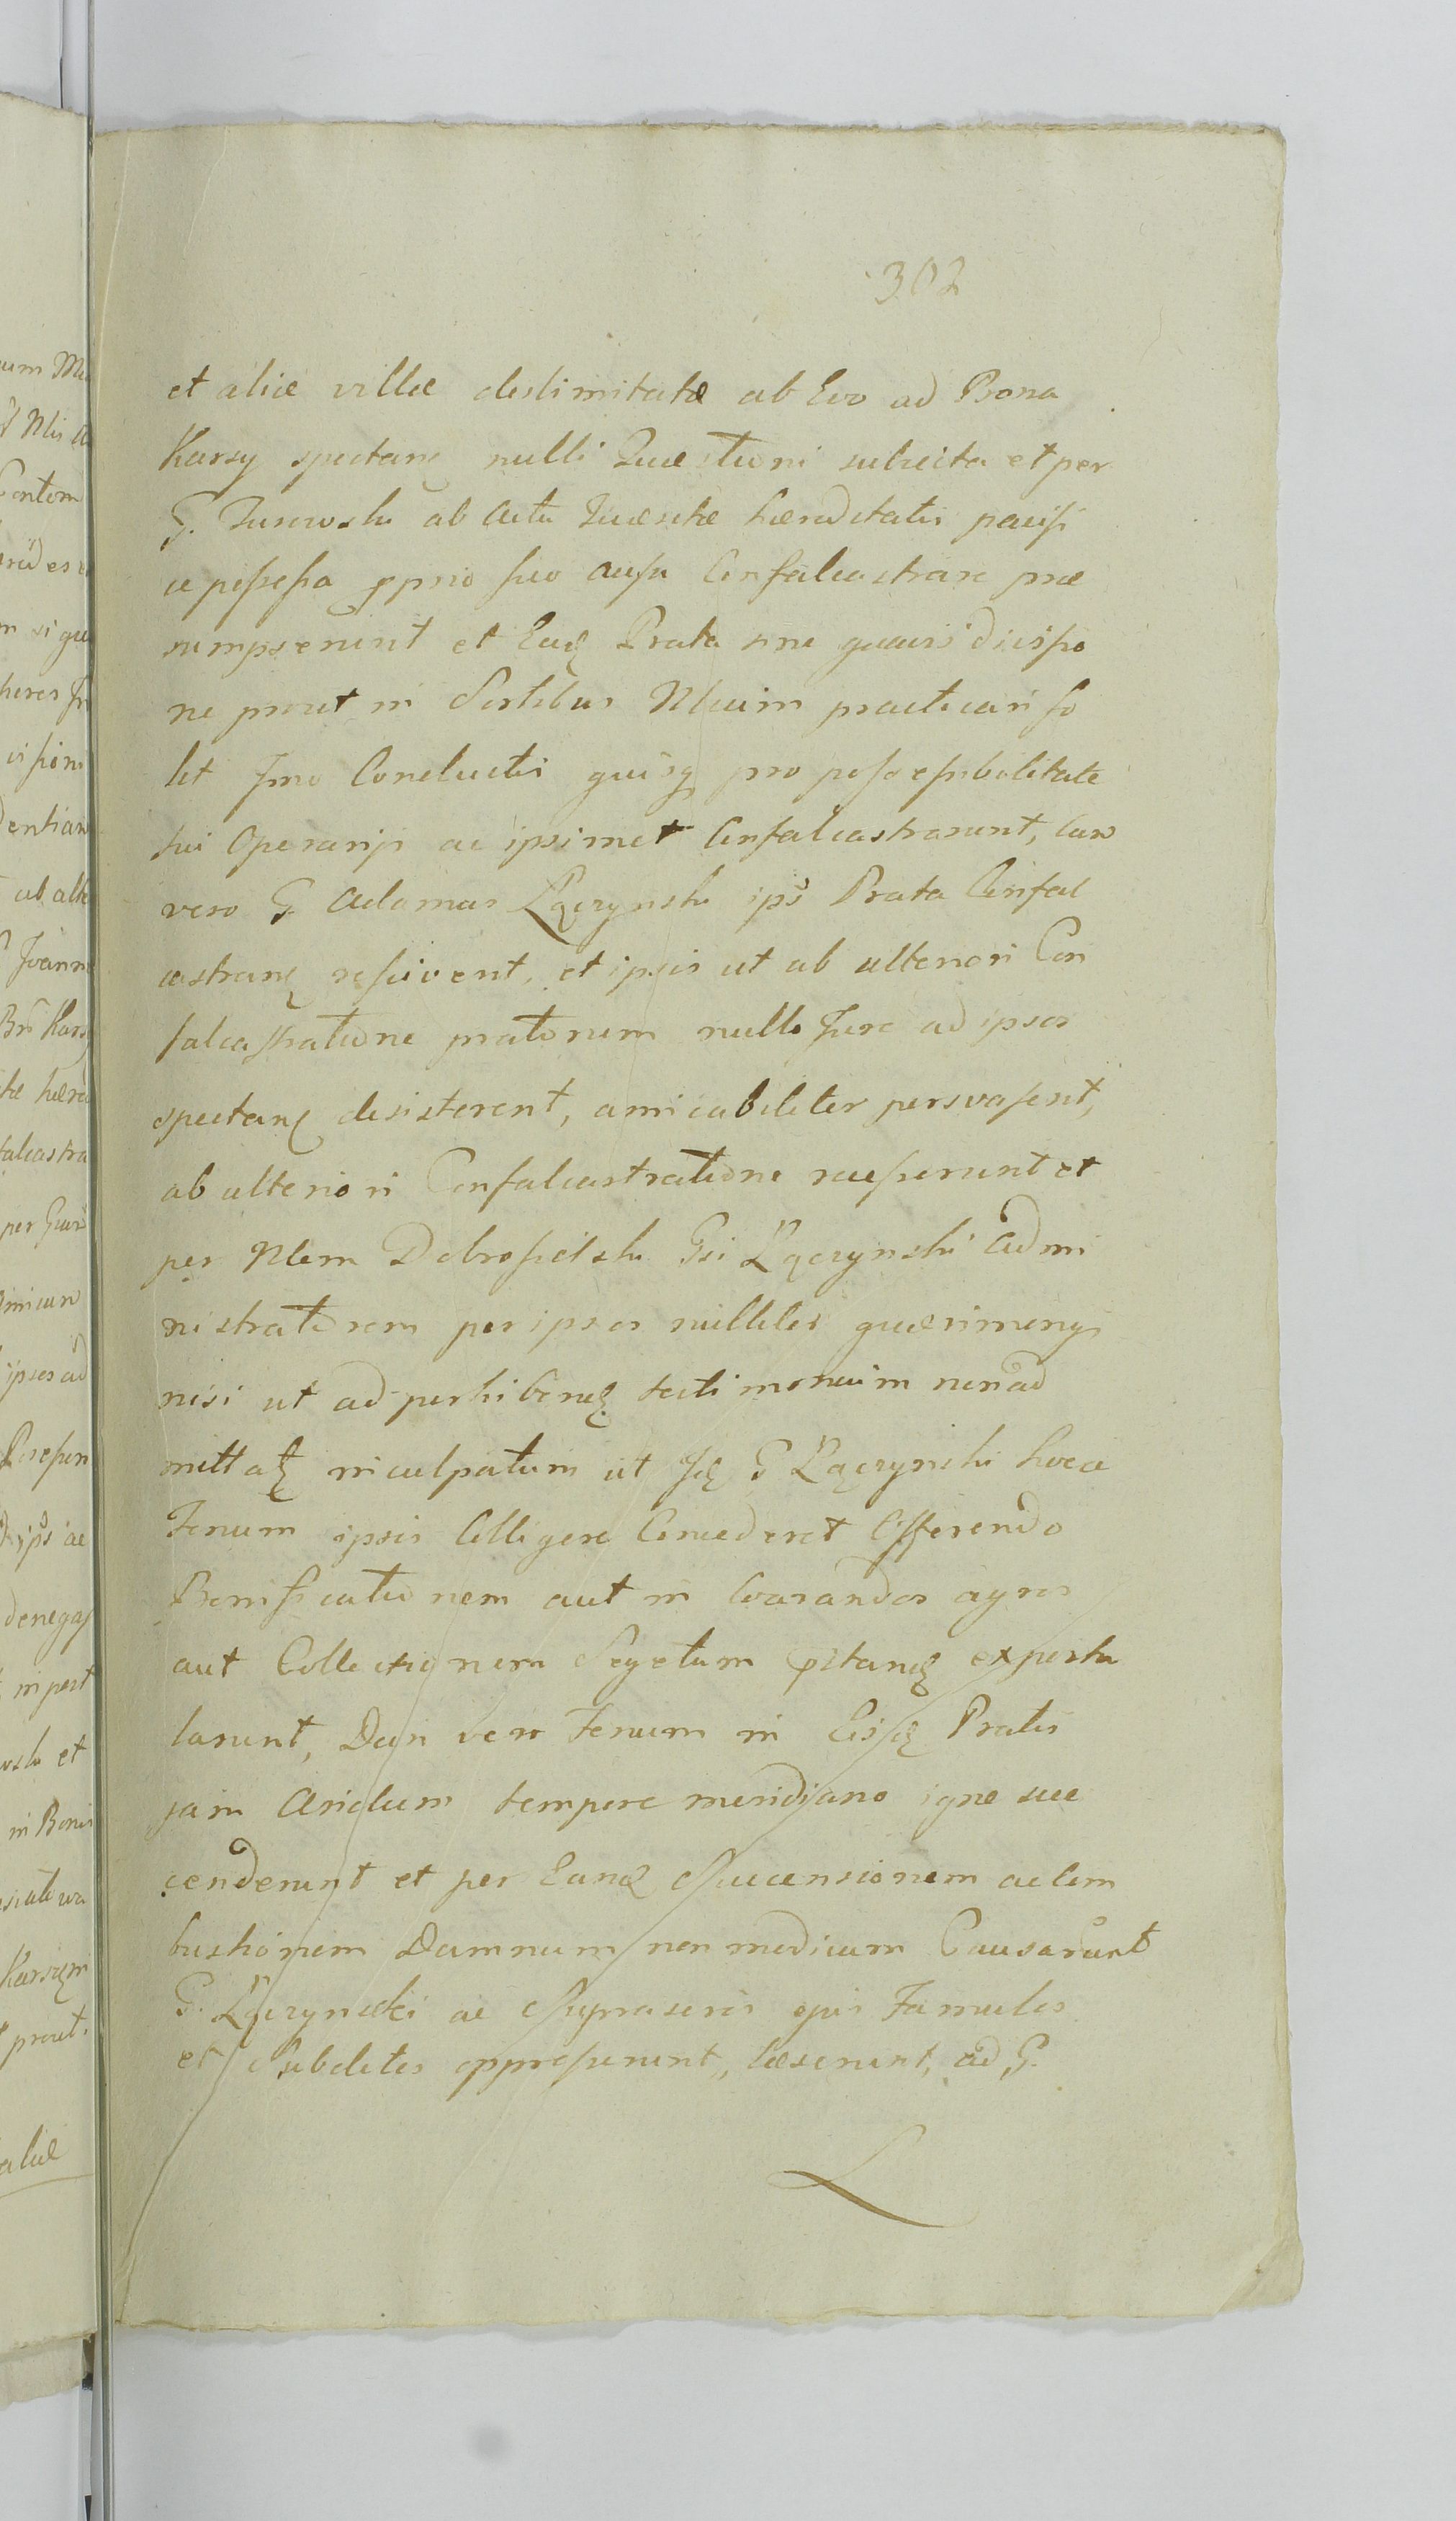 302
et aliæ villæ deslimitatæ ab Evo ad Bona
Karsy spectan nulli Quæstioni subiecta et per
G. Turowski ab Actu Quæsitæ hæreditatis pacifi
ce possessa pprio suo ausu Confalcastrare præ
sumpserunt et Eadē Prata sine quavis divisio
ne prout in Sortibus Nlium practicari so
let Imo Conductis quisq pro possessibilitate
sui Operariis ac ipsimet Confalcastrarunt, Cum
vero G Adamus Łączynski ips Prata Confal
castran rescivent, et ipsis ut ab ulteriori Con
falcastratione pratorum nullo Jure ad ipsos
spectan desisterent, amicabiliter persvasent,
ab ulteriori Confalcastratione recesserunt et
per Nlem Dobrosielski Gsi Łączynski Admi
nistratorem per ipsos nullibi quærimony
nisi ut ad perhibend testimonium non ad
mittat inculpatum ut Id G Łączynski hocce
Fenum ipsis Colligere Concederet Offerendo
Bonificationem aut in Coarandos agros
aut Collectionem Segetum pstand expostu
larunt, Dein vero Fenum in Eisd Pratis
jam Aridum tempore meridiano igne suc
cenderunt et per Eand Succensionem ac Com
bustionem Damnum non modicum Causarunt
G. Łączynski ac Suprascris ejus Famulos
et Subditos oppresserunt, læserunt, ad G.